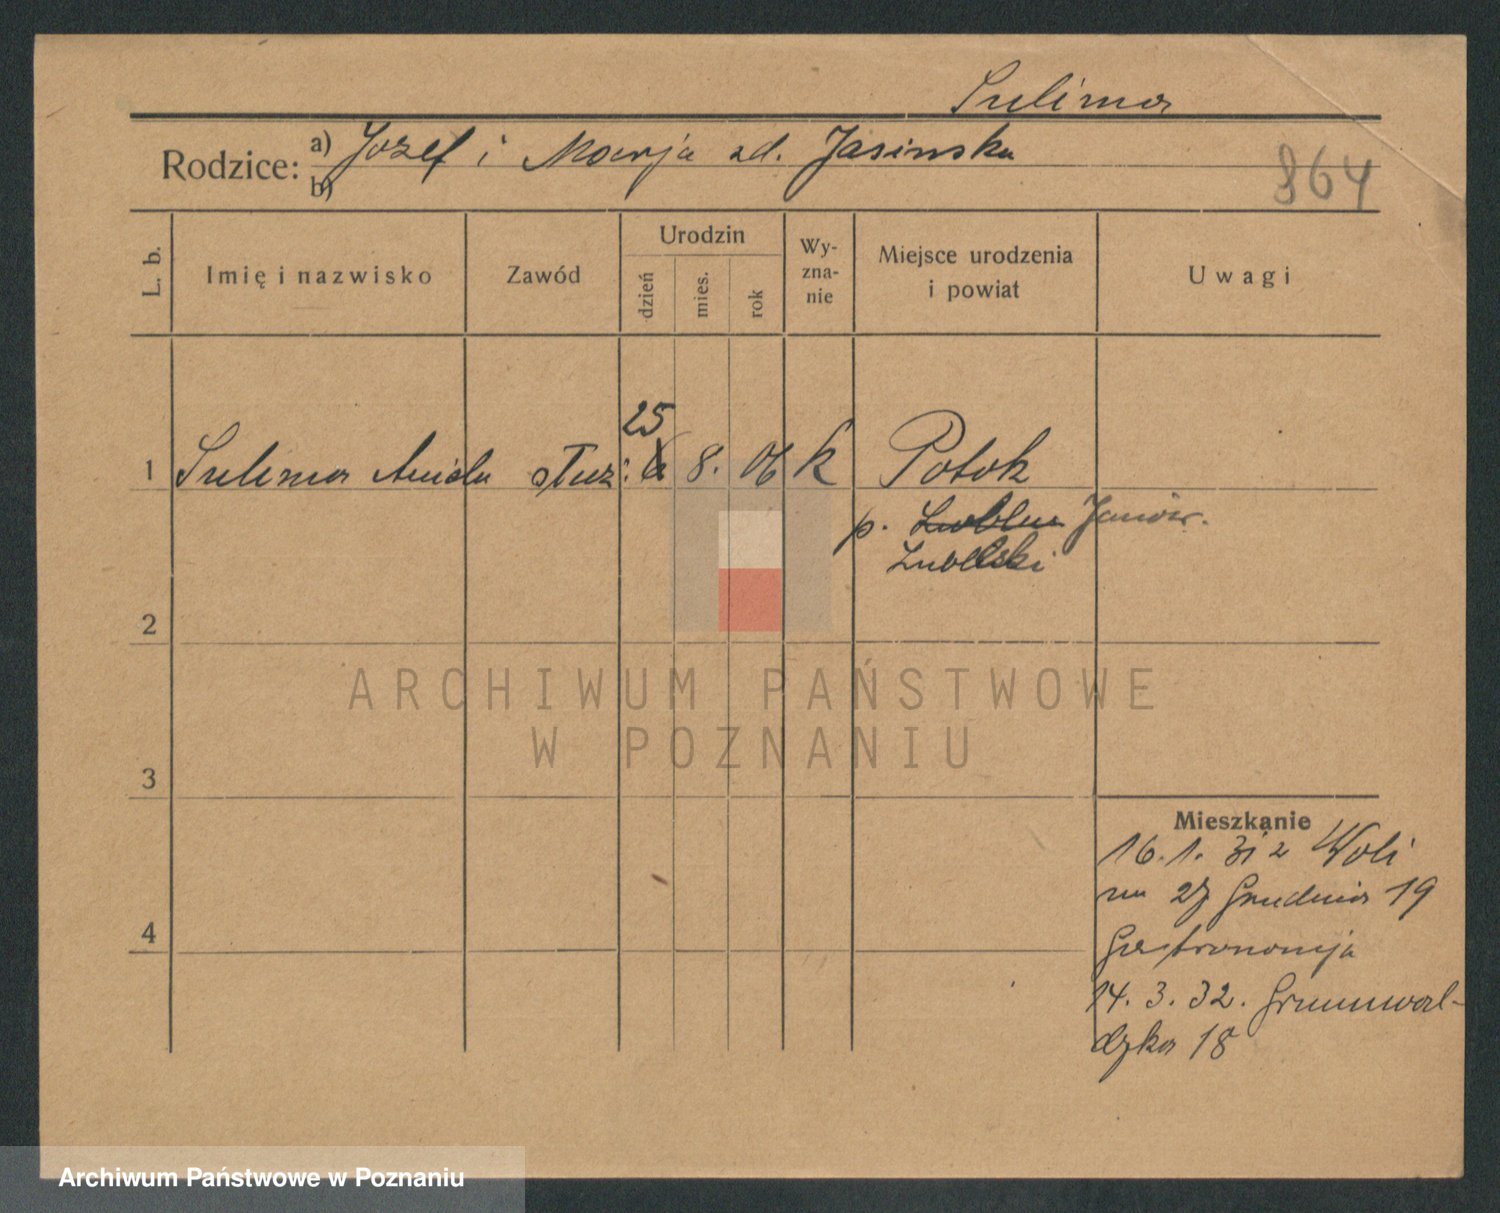 Sulima
Rodzice: a) Jozef i Marja zd. Jasinska
b)
864
L. b. Imię i nazwisko Zawód Urodzin dzień mies. rok Wy-zna-nie Miejsce urodzenia i powiat Uwagi
25
1 Sulima Aniela służ. 8. 06 k Potok
p. Lublin Janów.
Lubelski
2
ARCHIWUM PAŃSTWOWE
W POZNANIU
3
Mieszkanie
16. 1. 31 z Woli
na 27 Grudnia 19
Gastronomja
4
14. 3. 32. Grunwal-
dzka 18
Archiwum Państwowe w Poznaniu